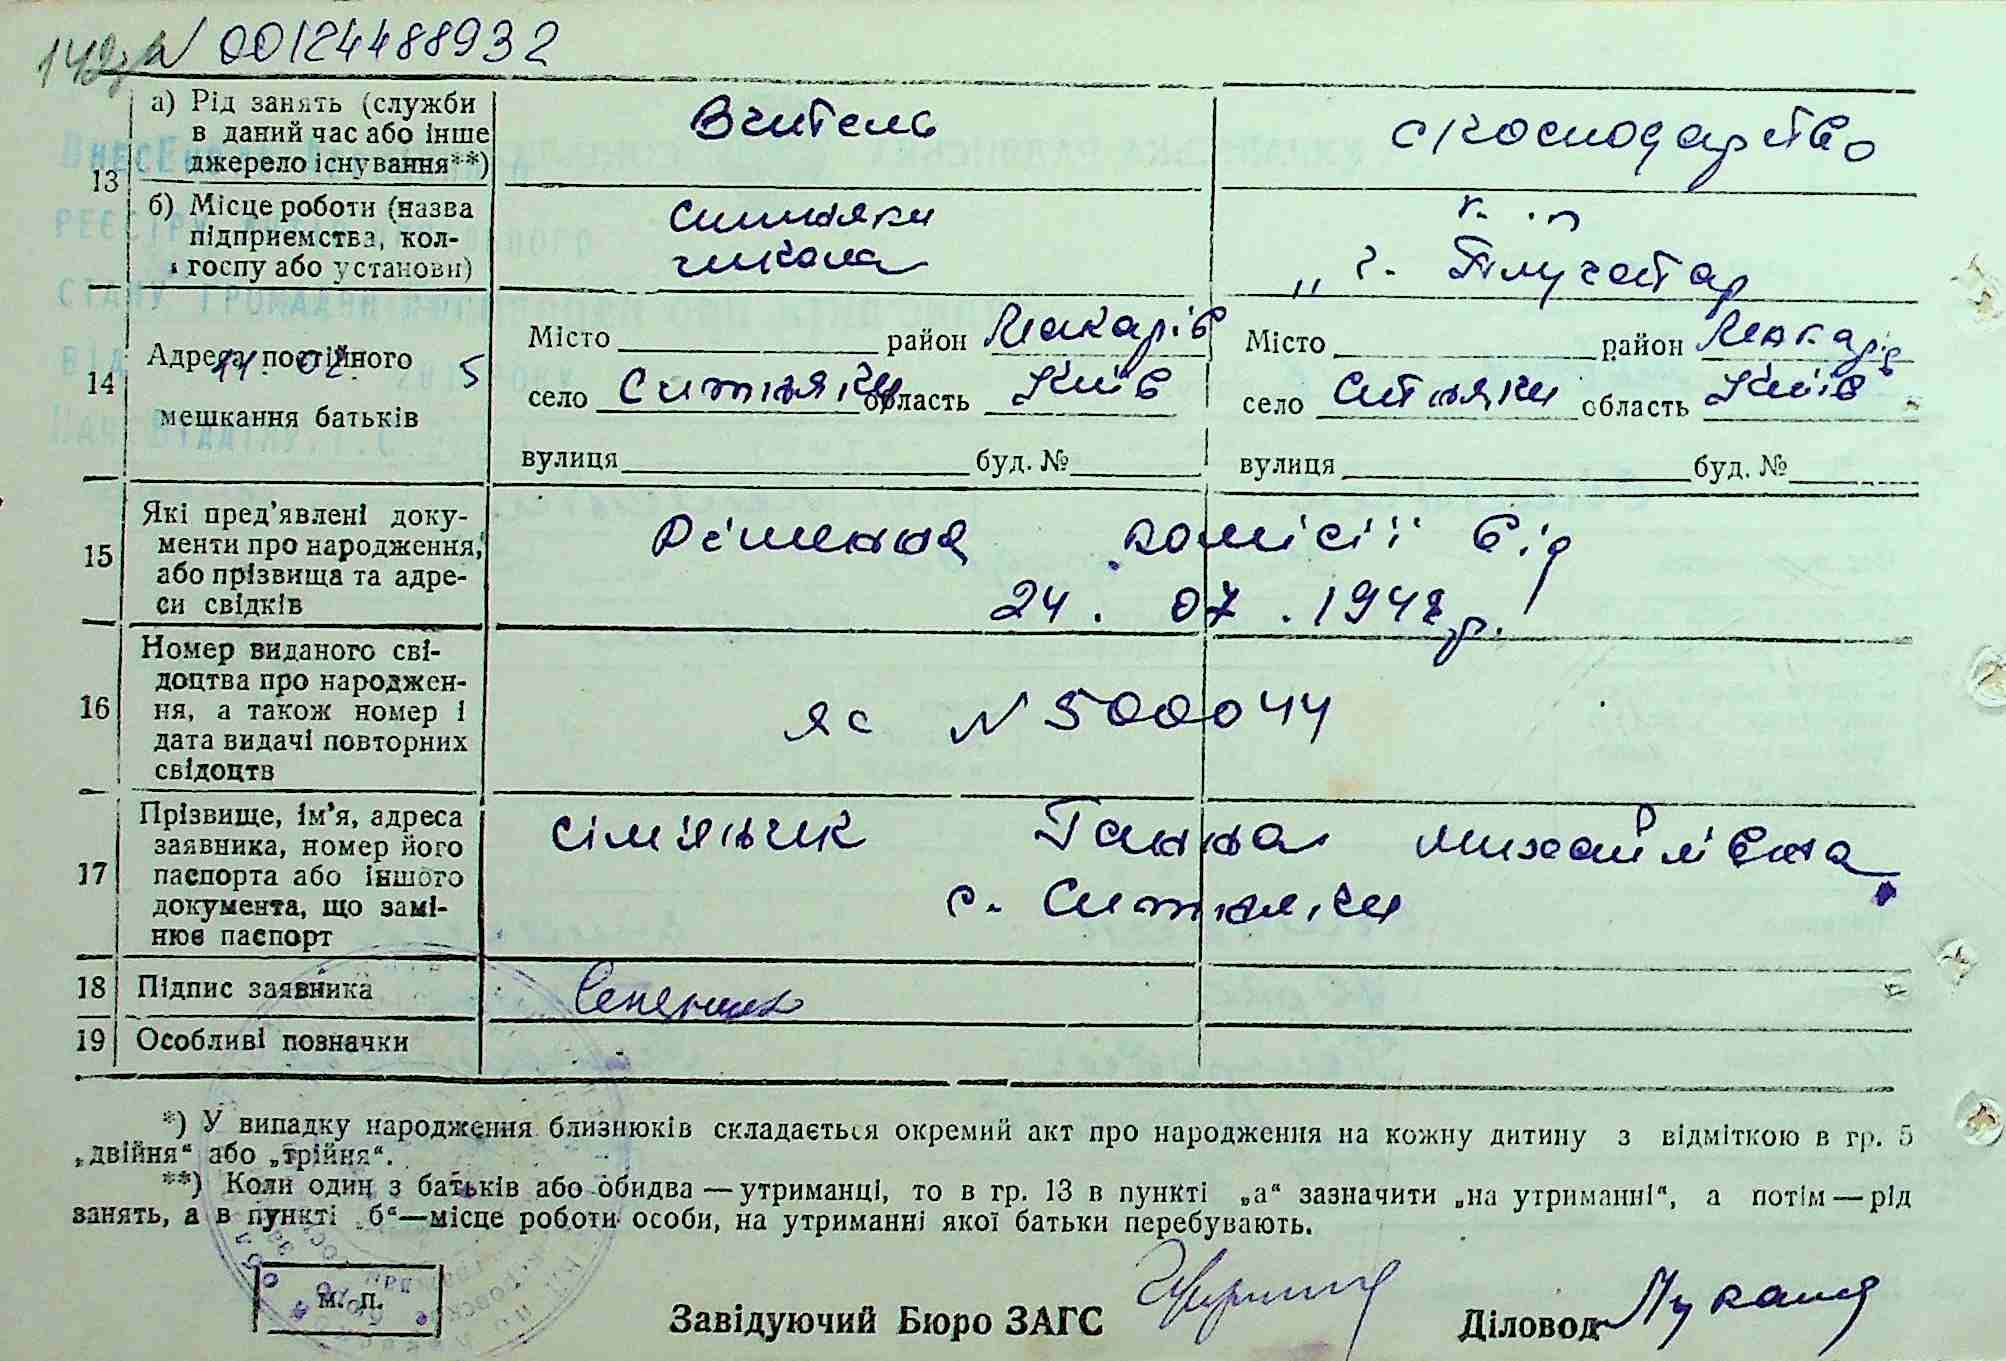 N 00124488932
а) Рід занять (служби в даний час або інше джерело існування**)
Вчитель
с/косподарство
13
б) Місце роботи (назва підприємства, колгоспу або установи)
Ситняки
школа
к. п
„ г.
14
Адреса постійного мешкання батьків
11. 02. 5
Місто район Макарів
Місто район Макарів
село Ситняки область Київ
село Ситняки область Київ
вулиця буд. №
вулиця буд. №
15
Які пред’явлені документи про народження, або прізвища та адреси свідків
Рішення комісії від
24. 07. 1947р.
16
Номер виданого свідоцтва про народження, а також номер і дата видачі повторних свідоцтв
яс N 500044
17
Прізвище, ім’я, адреса заявника, номер його паспорта або іншого документа, що замінює паспорт
Ганна Михайлівна
с. Ситняки
18 Підпис заявника
19 Особливі позначки
*) У випадку народження близнюків складається окремий акт про народження на кожну дитину з відміткою в гр. 5
„двійня“ або „трійня“.
**) Коли один з батьків або обидва — утриманці, то в гр. 13 в пункті „а“ зазначити „на утриманні“, а потім — рід
занять, а в пункті „б“—місце роботи особи, на утриманні якої батьки перебувають.
м. п.
Завідуючий Бюро ЗАГС
Діловод